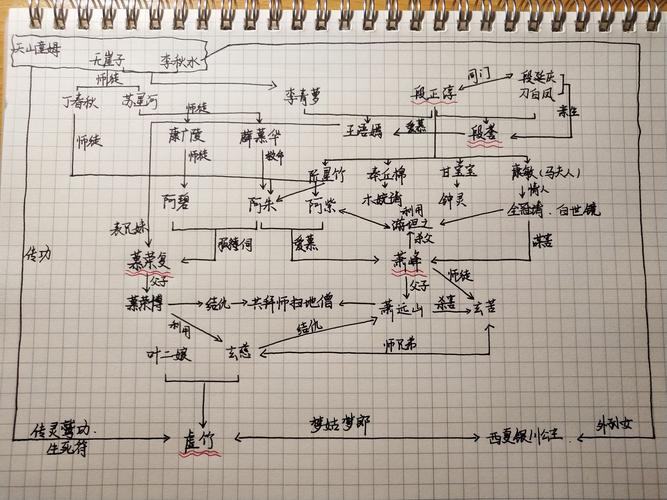 天山童姆
无崖子 李秋水
师徒
丁春秋 苏星河
师徒
李青萝
段正淳
同门
段延庆
刀白凤
亲生
师徒
康广陵
薛慕华
王语嫣
爱慕
段誉
师徒
救命
阮星竹
秦红棉
甘宝宝
康敏(马夫人)
情人
阿碧
阿朱
阿紫
木婉清
钟灵
全冠清、白世镜
利用
游坦之
杀父
谋害
表兄妹
服侍伺
爱慕
传功
慕容复
萧峰
师徒
父子
父子
慕容博
结仇
共拜师扫地僧
萧远山
杀害
玄苦
利用
结仇
师兄弟
叶二娘
玄慈
传灵鹫功、
生死符
虚竹
梦姑梦郎
西夏银川公主
外孙女